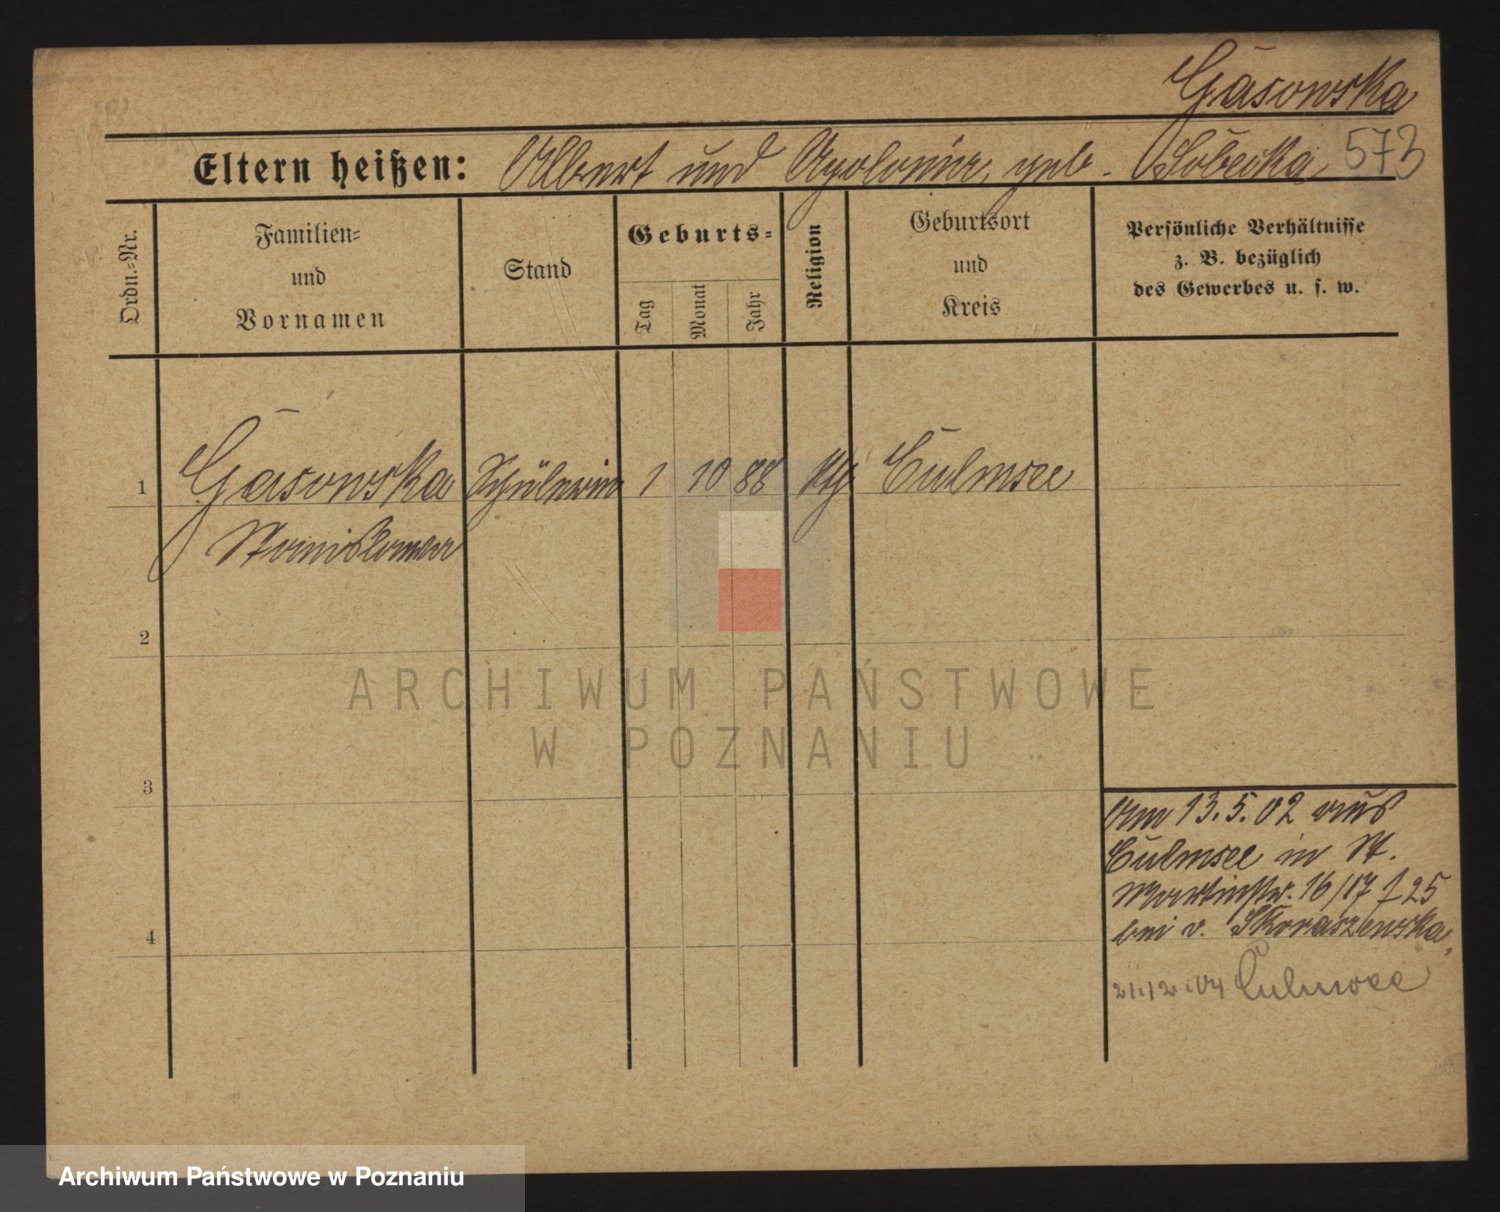 Gąsowska
Eltern heißen: Albert und Apolonia, geb. Sobecka 573
Ordn.-Nr.
Familien-
und
Vornamen
Stand
Geburts-
Tag
Monat
Jahr
Religion
Geburtsort
und
Kreis
Persönliche Verhältnisse
z. B. bezüglich
des Gewerbes u. s. w.
1 Gąsowska Schülerin 1 10 88 kth Culmsee
Stanislawa
2
3
4
Am 13.5.02 aus
Culmsee in St.
Martinstr. 16/17 f 25
bei v. Skoraszewska,
21.12.04 Culmsee
ARCHIWUM PAŃSTWOWE
W POZNANIU
Archiwum Państwowe w Poznaniu